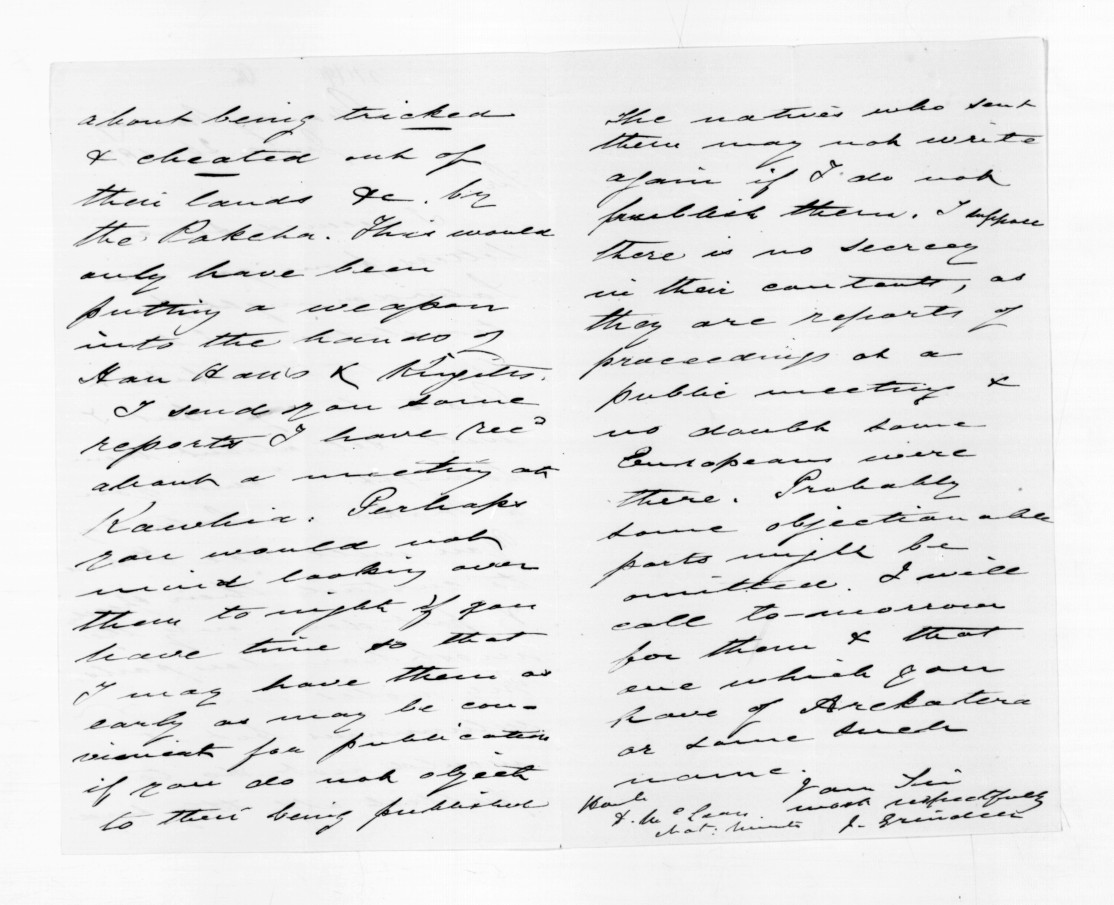 about being tricked
& cheated out of
their lands &c. by
the Pakeha. This would
only have been
putting a weapon
into the hands of
Hau Haus & Kingites.
I send you some
reports I have recd
about a meeting at
Kawhia. Perhaps
you would not
mind looking over
them to night if you
have time so that
I may have them as
early as may be con-
venient for publication
if you do not object
to their being published
The natives who sent
them may not write
again if I do not
publish them. I suppose
there is no secrecy
in their contents, as
they are reports of
proceedings at a
public meeting &
no doubt some
Europeans were
there. Probably
some objectionable
parts might be
omitted. I will
call to-morrow
for them & that
one which you
have of Arekatera
or some such
name.
I am Sir
most respectfully
J. Grindell
Honble
D. McLean
Nat: Minister